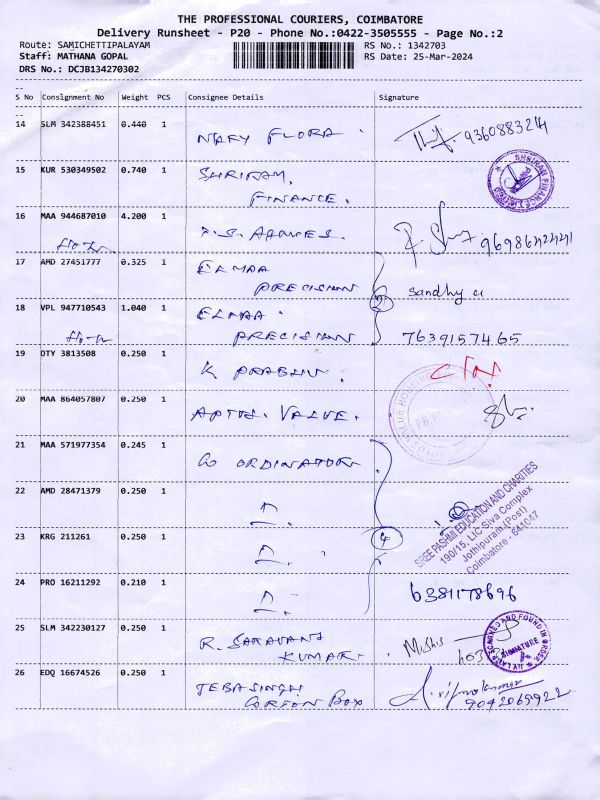 THE PROFESSIONAL COURIERS, COIMBATORE
Delivery Runsheet - P20 - Phone No.:0422-3505555 - Page No.:2
Route: SAMICHETTIPALAYAM RS No.: 1342703
Staff: MATHANA GOPAL RS Date: 25-Mar-2024
DRS No.: DCJB134270302
S No Consignment No Weight PCS Consignee Details Signature
14 SLM 342388451 0.440 1 FLORA 9360883214
15 KUR 530349502 0.740 1 SHRIRAM,
FINANCE.
SHRIRAM FINANCE LIMITED
16 MAA 944687010 4.200 1
17 AMD 27451777 0.325 1 ELMAA
PRECISION sandhya
18 VPL 947710543 1.040 1 ELMAA
PRECISION 7639157465
19 OTY 3813508 0.250 1 K PRABHU.
20 MAA 864057807 0.250 1 APTUS. VALUE.
21 MAA 571977354 0.245 1 CO ORDINATOR
22 AMD 28471379 0.250 1
SREE PASHMI EDUCATION AND CHARITIES
190/15, LIC Siva Complex
Jothipuram (Post)
Coimbatore - 641047
23 KRG 211261 0.250 1
4
24 PRO 16211292 0.210 1 6381178696
25 SLM 342230127 0.250 1 R. SARAVANA
KUMAR.
SIGNATURE
26 EDQ 16674526 0.250 1 JEBASINGH
CORTON BOX 9042069922